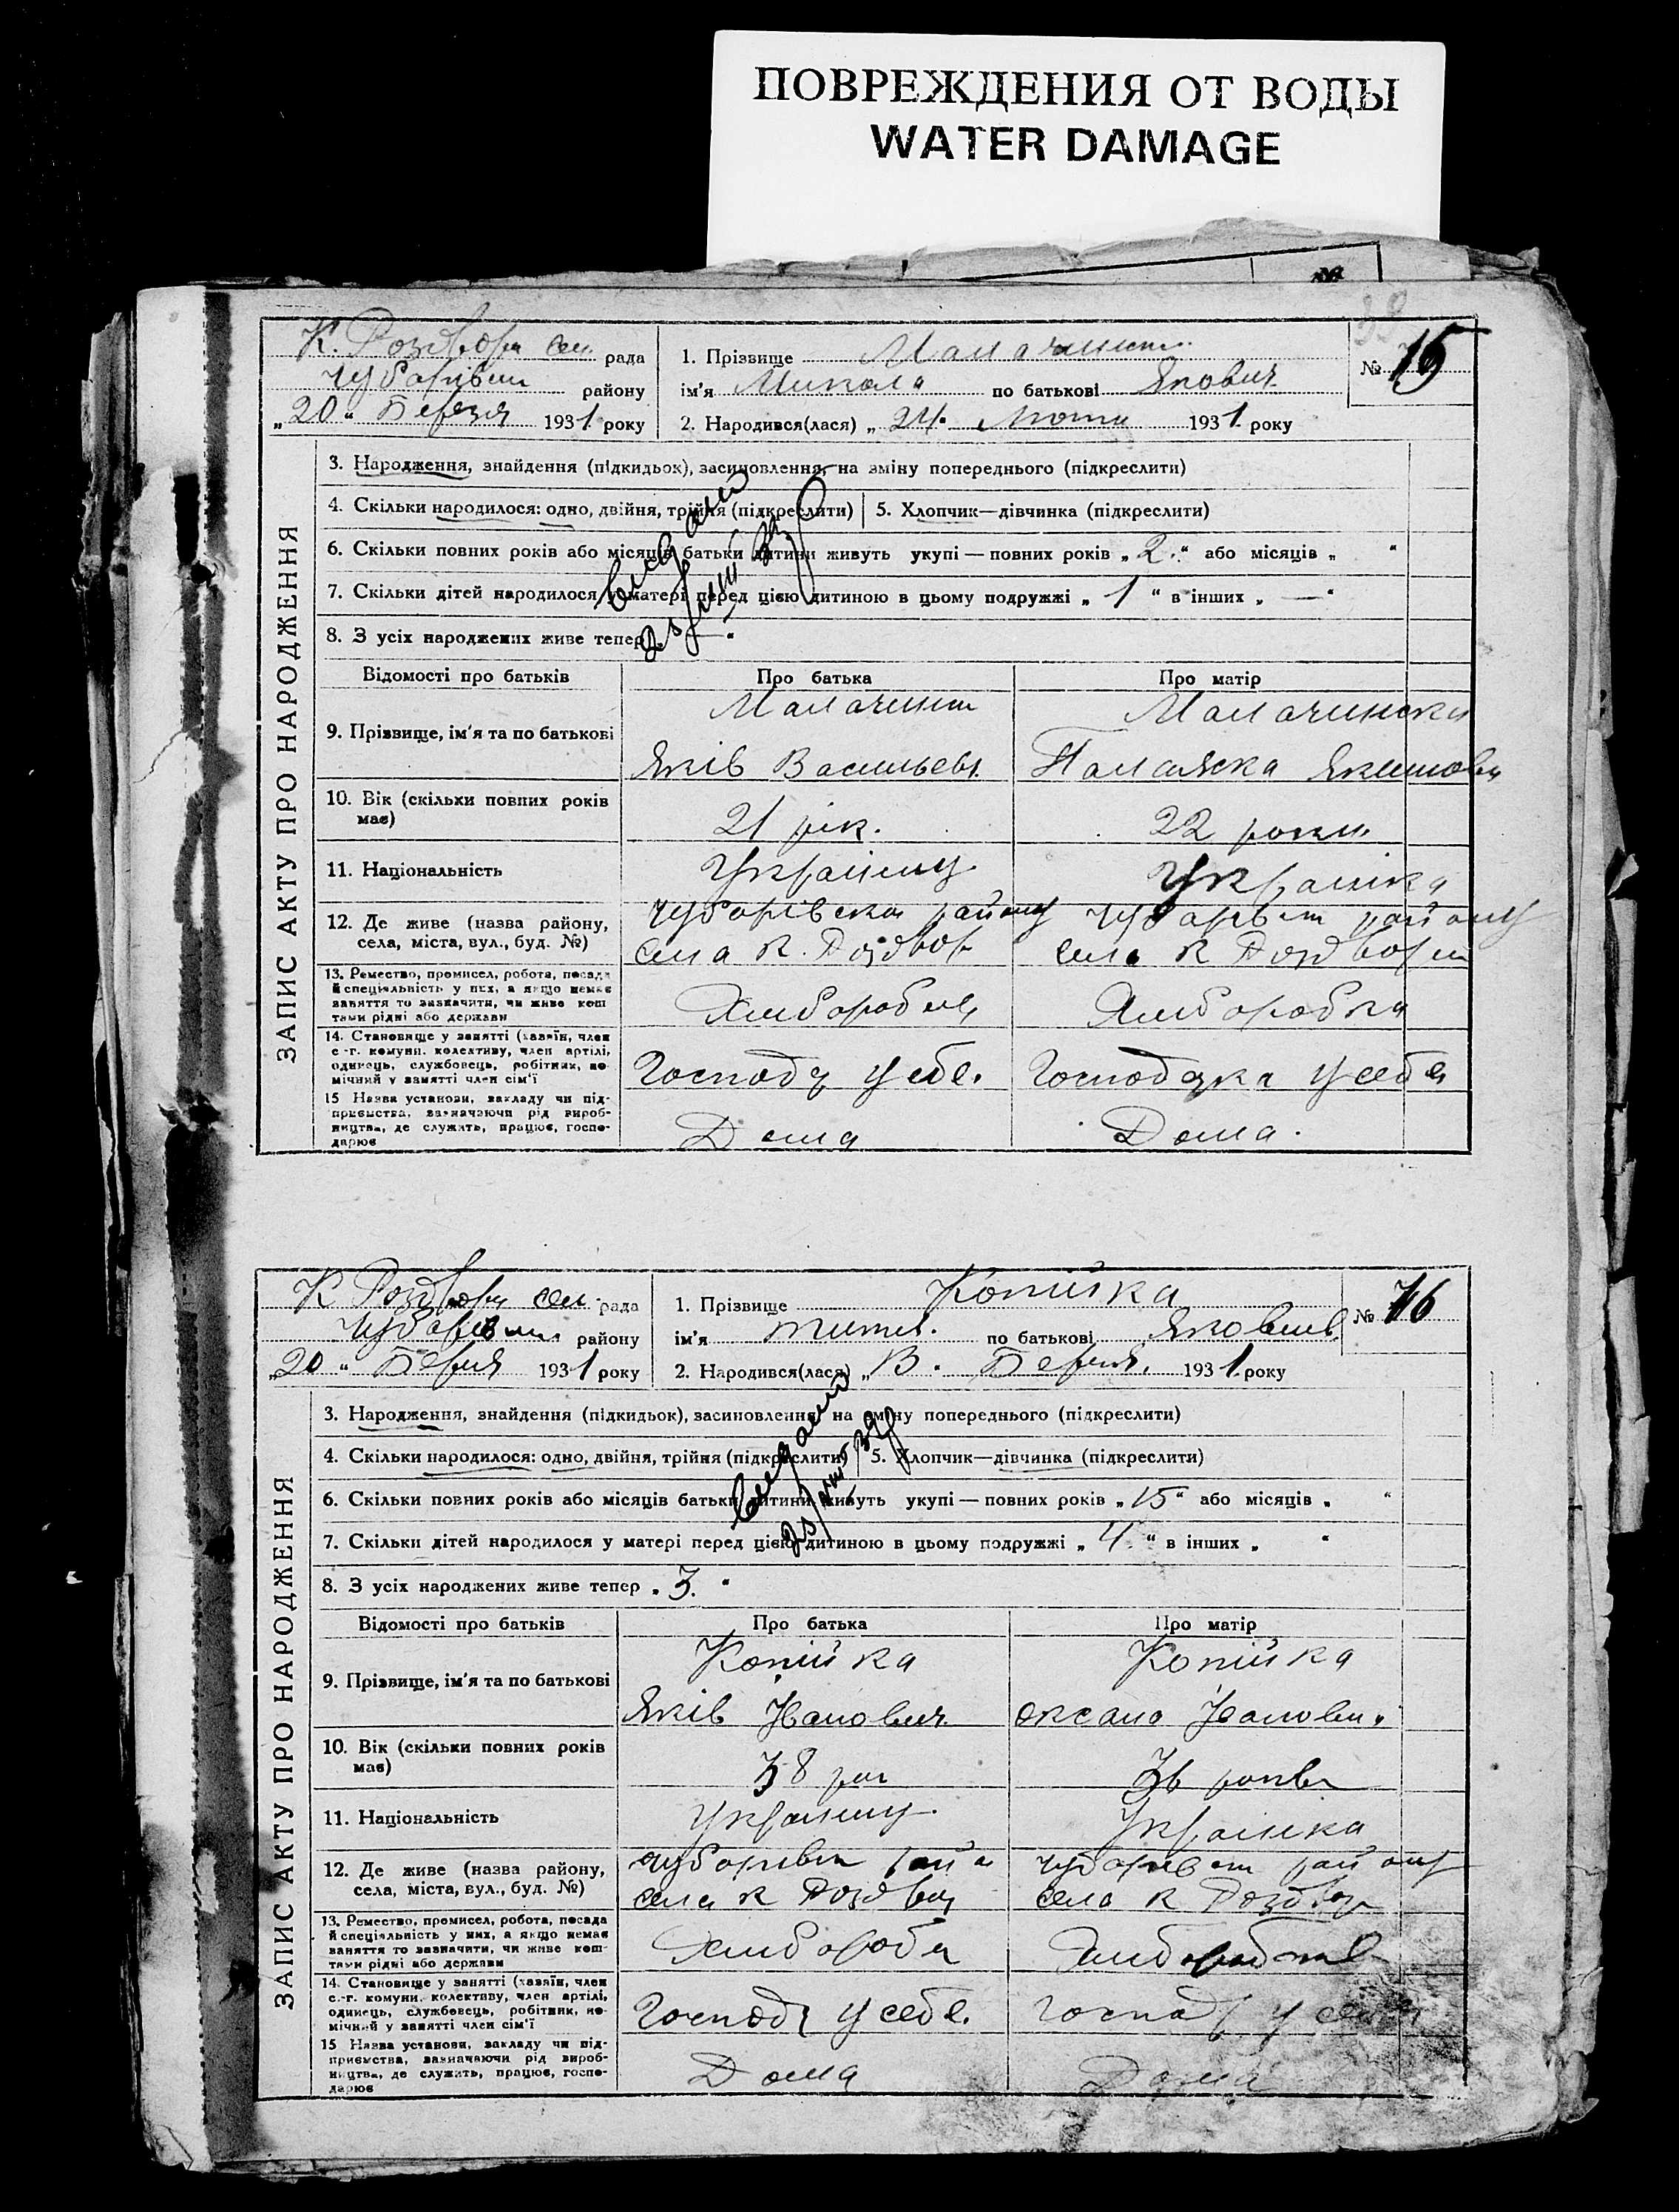 ПОВРЕЖДЕНИЯ ОТ ВОДЫ
WATER DAMAGE
К. Роздори сел. рада
Чубарівськ району
„20“ Березня 1931 року
1. Прізвище
ім'я Микола по батькові Якович
№ 15
2. Народився(лася) „24. Лютий 1931 року
ЗАПИС АКТУ ПРО НАРОДЖЕННЯ
3. Народження, знайдення (підкидьок), засиновлення, на зміну попереднього (підкреслити)
4. Скільки народилося: одно, двійня, трійня (підкреслити) 5. Хлопчик—дівчинка (підкреслити)
6. Скільки повних років або місяців батьки дитини живуть укупі — повних років „2.“ або місяців „ “
7. Скільки дітей народилося у матері перед цією дитиною в цьому подружжі „ 1 “ в інших „ — “
8. З усіх народжених живе тепер „ — “
Відомості про батьків Про батька Про матір
9. Прізвище, ім'я та по батькові
Яків Васильев.
10. Вік (скільки повних років має)
21 рік. 22 роки.
11. Національність
Українец Українка
12. Де живе (назва району, села, міста, вул., буд. №)
Чубарівськ району Чубарівськ району
села К. Роздор села К Роздори
13. Ремество, промисел, робота, посада й спеціяльність у них, а якщо немає заняття то зазначити, чи живе кош тами рідні або держави
Хлібороб Хліборобка
14. Становище у занятті (хазяїн, член с.-г. комуни, колективу, член артілі, одинець, службовець, робітник, помічний у занятті член сім'ї
Господар у себе. Господарка у себе
15 Назва установи, закладу чи підприємства, зазначаючи рід виробництва, де служить, працює, господарює
Дома Дома.
К Роздори сел. рада
Чубарівськ. району
„20“ Березня 1931 року
1. Прізвище Копійка
ім'я по батькові Яковлів.
№ 16
2. Народився(лася) „13. Березня. 1931 року
ЗАПИС АКТУ ПРО НАРОДЖЕННЯ
3. Народження, знайдення (підкидьок), засиновлення, на зміну попереднього (підкреслити)
4. Скільки народилося: одно, двійня, трійня (підкреслити) 5. Хлопчик—дівчинка (підкреслити)
6. Скільки повних років або місяців батьки дитини живуть укупі — повних років „15“ або місяців „ “
7. Скільки дітей народилося у матері перед цією дитиною в цьому подружжі „ 4. “ в інших „ “
8. З усіх народжених живе тепер „ 3. “
Відомості про батьків Про батька Про матір
9. Прізвище, ім'я та по батькові
Копійка Копійка
Яків Іванович. Оксана Іванови.
10. Вік (скільки повних років має)
38 рік 36 років
11. Національність
Українец. Українка
12. Де живе (назва району, села, міста, вул., буд. №)
Чубарівськ рай Чубарівськ району
села К Роздор села К Роздор
13. Ремество, промисел, робота, посада й спеціяльність у них, а якщо немає заняття то зазначити, чи живе коштами рідні або держави
Хлібороб
14. Становище у занятті (хазяїн, член с.-г. комуни, колективу, член артілі, одинець, службовець, робітник, помічний у занятті член сім'ї
Господ у себе. Господ у себе
15 Назва установи, закладу чи підприємства, зазначаючи рід виробництва, де служить, працює, господарює
Дома Дома